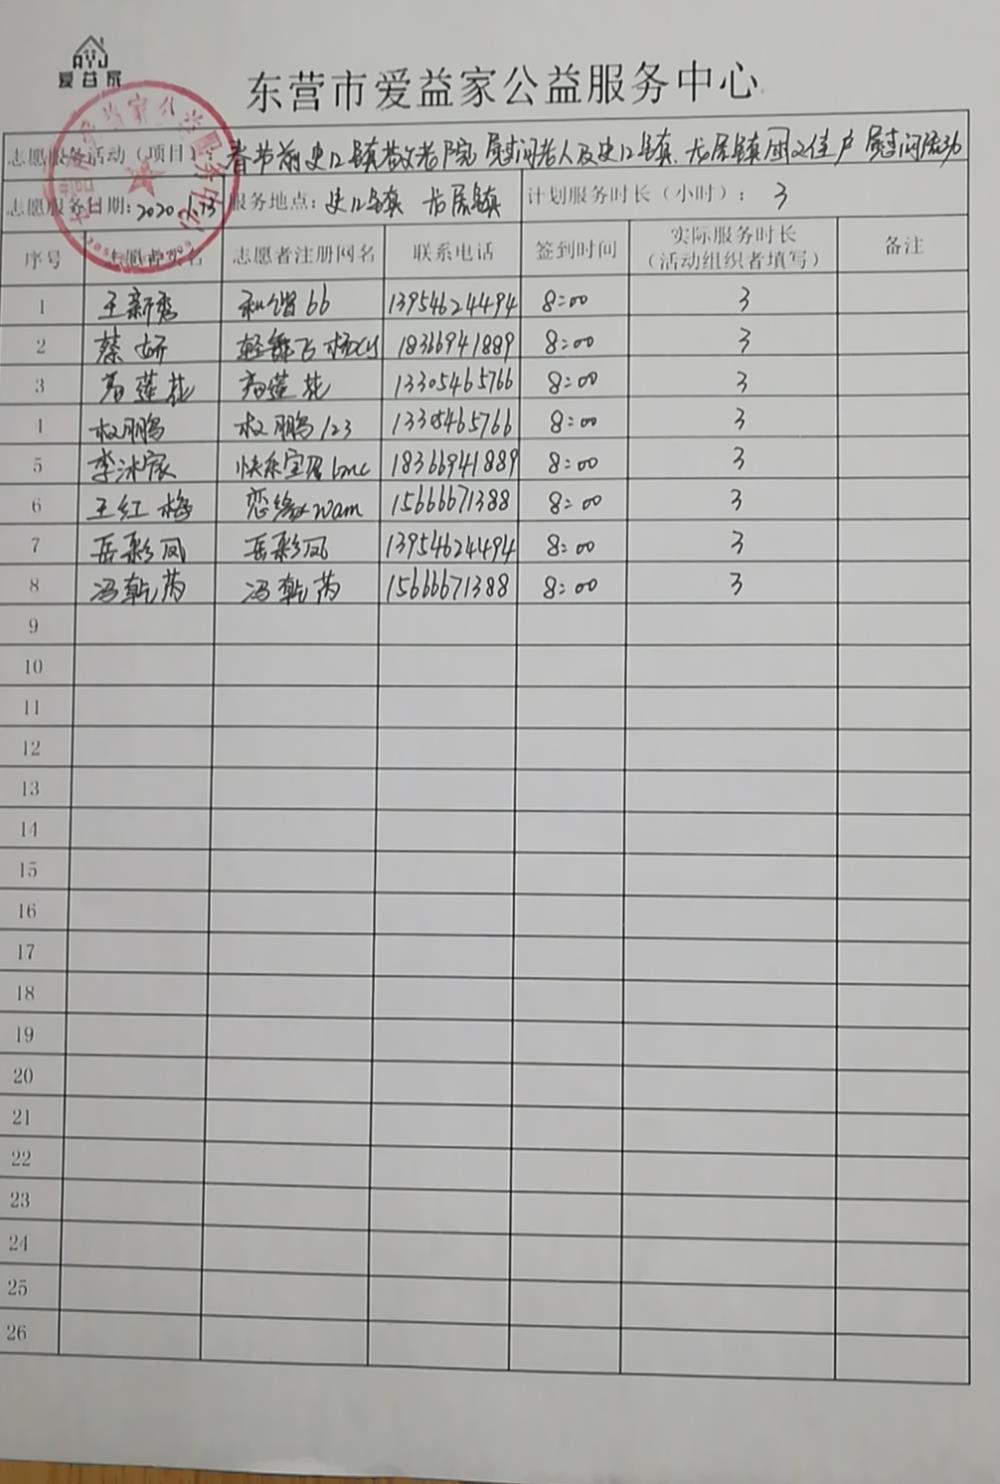 AYJ
爱益家
东营市爱益家公益服务中心
志愿服务活动（项目）：春节前史口镇敬老院慰问老人及史口镇、龙居镇困难佳户慰问活动
志愿服务日期：2020.1.13 服务地点：史口镇 龙居镇 计划服务时长（小时）：3
序号 志愿者实名 志愿者注册网名 联系电话 签到时间 实际服务时长（活动组织者填写） 备注
1 王新秀 和谐66 13954624494 8:00 3
2 蔡妍 轻舞飞扬cy 18366941889 8:00 3
3 莲花 莲花 13305465766 8:00 3
4 权鹏 权鹏123 13305465766 8:00 3
5 李沐宸 快乐宝贝lmc 18366941889 8:00 3
6 王红梅 恋缘wam 15666671388 8:00 3
7 岳彩凤 岳彩凤 13954624494 8:00 3
8 冯乾芮 冯乾芮 15666671388 8:00 3
9
10
11
12
13
14
15
16
17
18
19
20
21
22
23
24
25
26